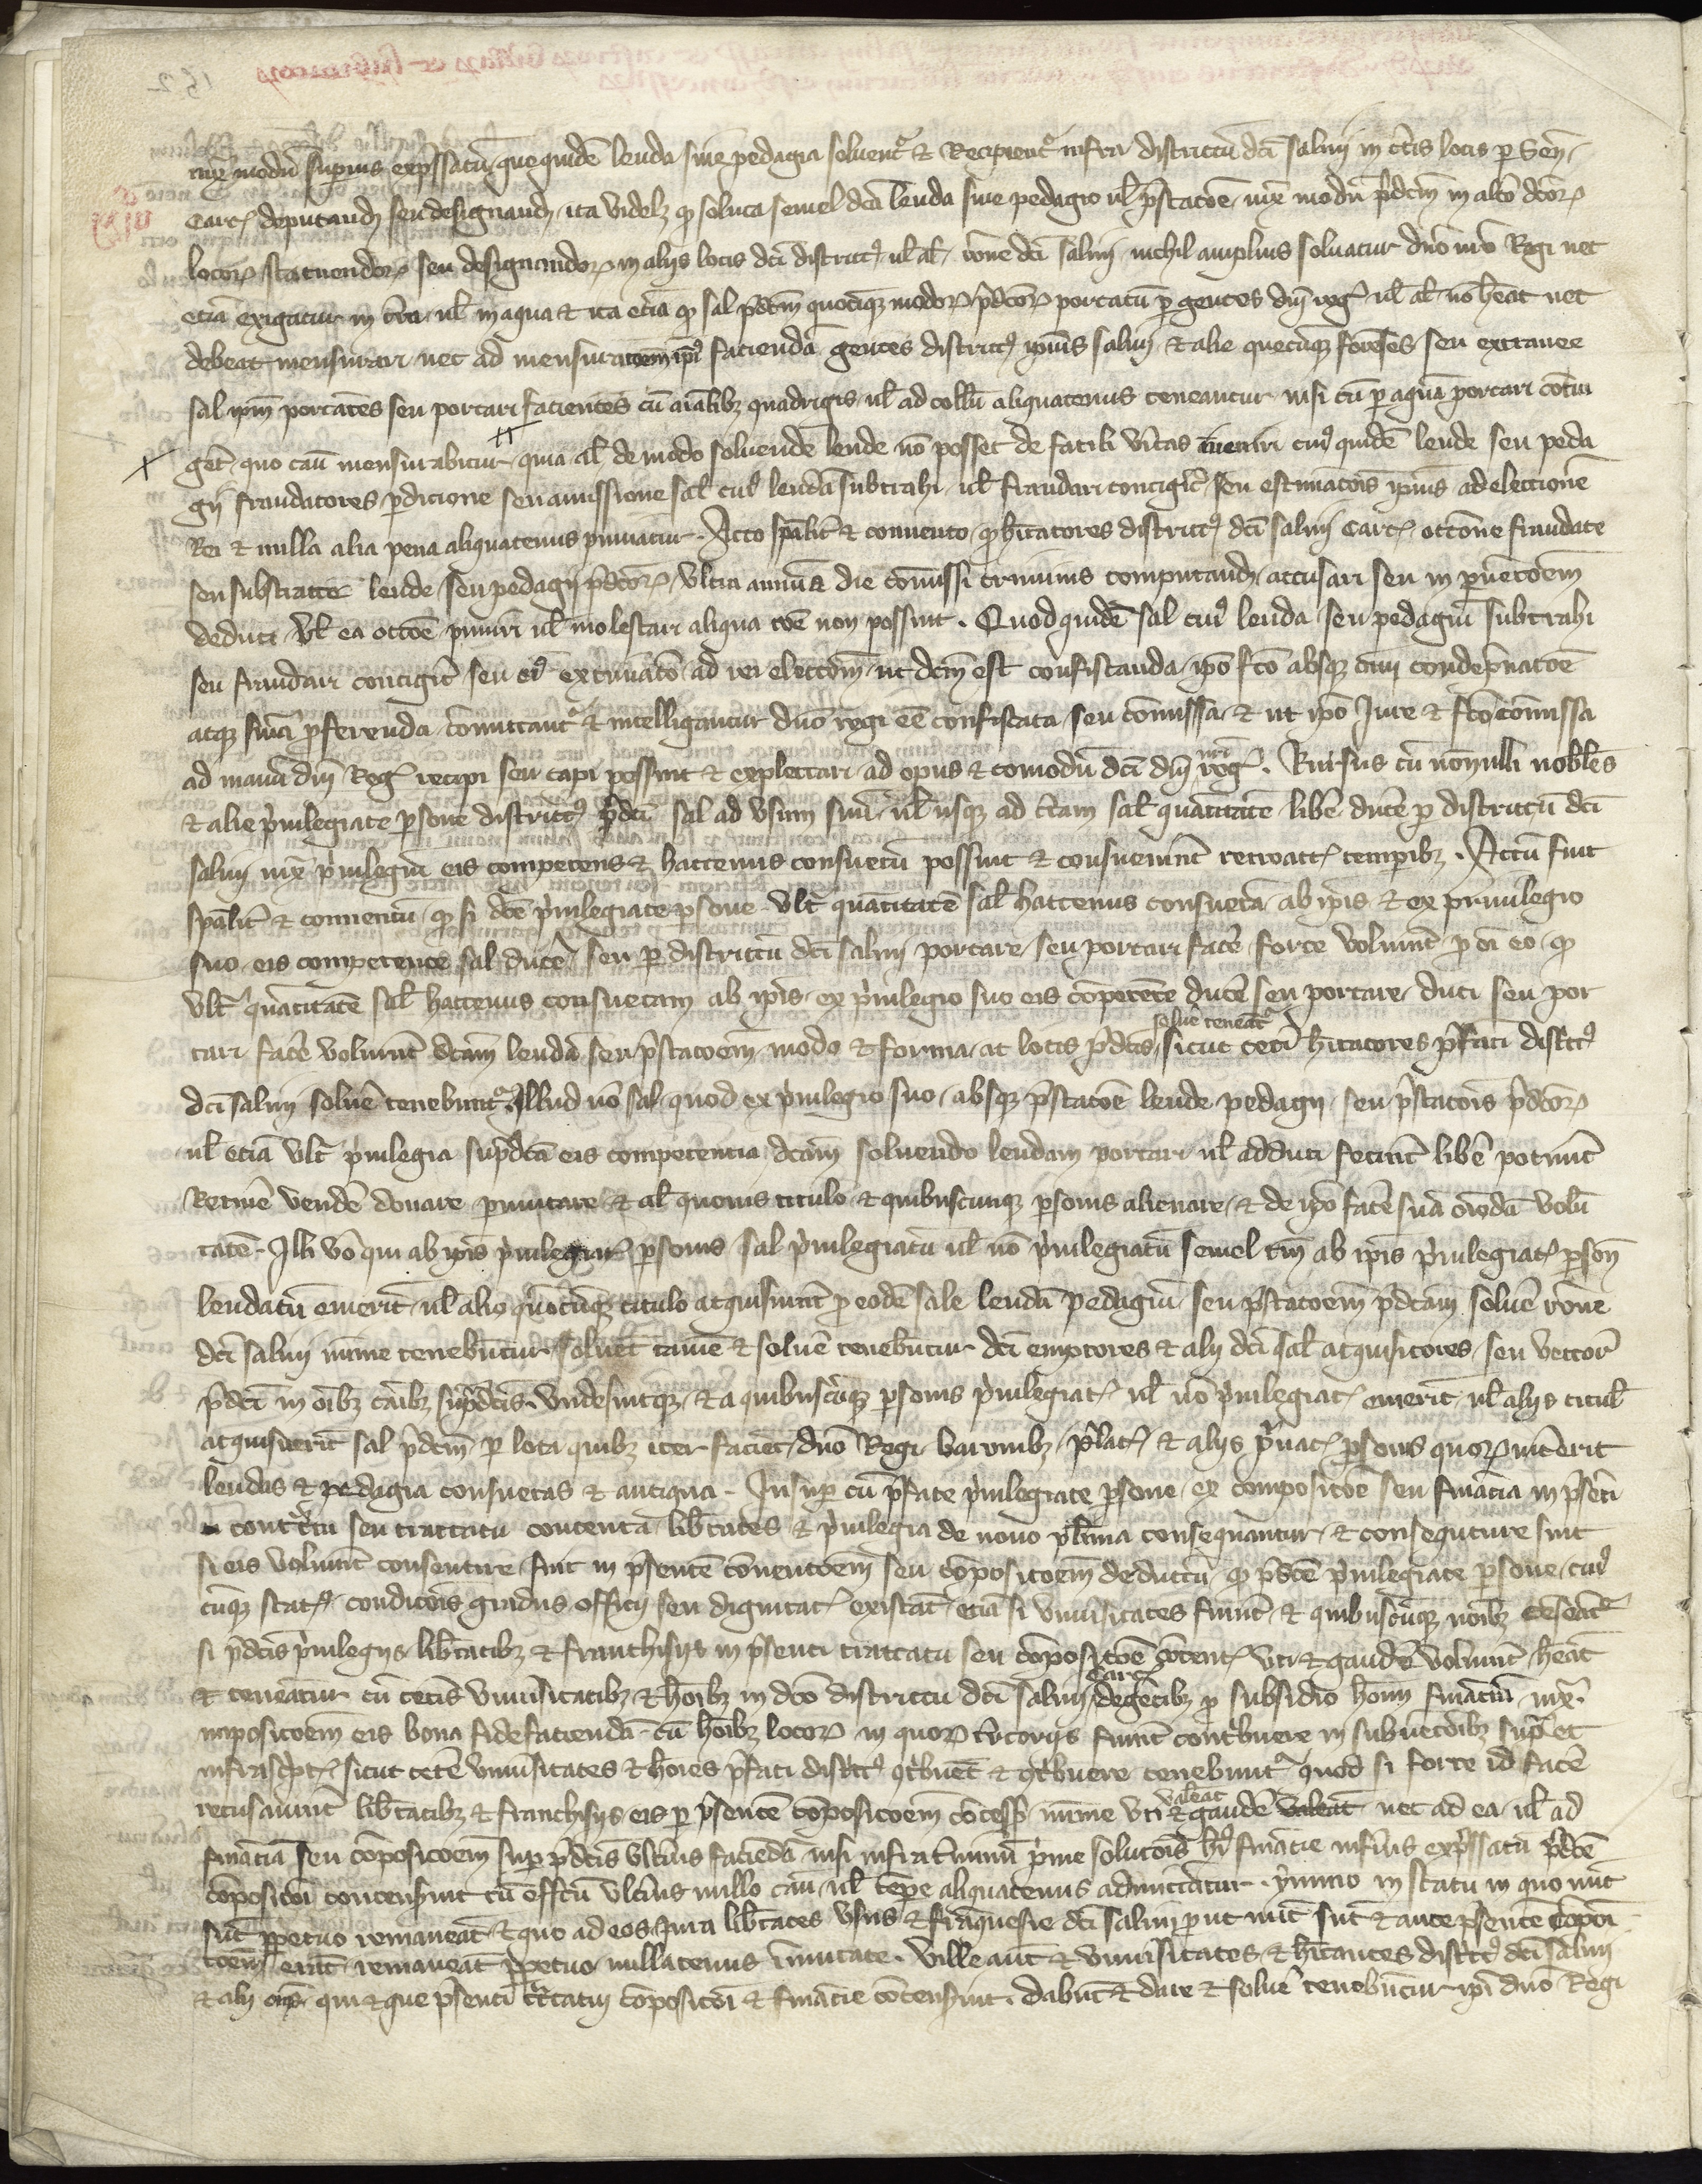 iuxta modum superius expressatum que quidem leuda sive pedagia solventur et Recipientur infra districtum dicti salini in certis locis per Sen.
Carc. deputandis seu designandis ita videlicet quod soluta semel dicta leuda sive pedagio vel prestatione iuxta modum predictum in altero dictorum
locorum statuendorum seu designandorum in aliis locis dicti districtus vel alibi ratione dicti salini nichil amplius solvatur domino nostro Regi nec
etiam exigatur in terra vel in aqua et ita etiam quod sal predictum quocumque modorum predictorum portatum per gentes domini regis vel alibi non habeat nec
debeat mensurari nec ad mensurationem ipsius faciendam gentes districtus ipsius salini et alie quecumque forenses seu extranee
sal ipsum portantes seu portari facientes cum animalibus quadrigis vel ad collum aliquatenus teneantur nisi cum per aquam portari contin
get quo casu mensurabitur quia alias de modo solvende leude non posset de facili veritas inveniri cuius quidem leude seu peda
gii fraudatores perdicione seu amissione salis cuius leudam subtrahi vel fraudari contigerit seu estimationis ipsius ad electionem
Rei et nulla alia pena aliquatenus puniatur. Acto specialiter et convento quod habitatores districtus dicti salini Carc. occasione fraudate
seu substracte leude seu pedagii predictorum ultra annum a die comissi criminis computandum accusari seu in prevencionem
deduci vel ea occasione puniri vel molestari aliqua ratione non possint. Quod quidem sal cuius leuda seu pedagium subtrahi
seu fraudari contigerit seu eius extimatio ad rei electionem ut dictum est confiscanda ipso facto absque causa condempnatione
atque sententia proferenda committantur et intelligantur domino regi esse confiscata seu commissa et ut ipso Jure et facto commissa
ad manum domini Regis recipi seu capi possint et explectari ad opus et comodum dicti domini nostri regis. Rursus cum nonnulli nobiles
et alie privilegiate persone districtus predicti sal ad usum suum vel usque ad certam salis quantitatem libere ducere per districtum dicti
salini iuxta privilegium eis competens et hactenus consuetum possint et consueverint retroactis temporibus. Actum fuit
specialiter et conventum quod si dicte privilegiate persone ultra quantitatem salis hactenus consuetam ab ipsis et ex privilegio
suo eis competente sal ducere seu per districtum dicti salini portare seu portari facere forte voluerint pro omni eo quod
ultra quantitatem salis hactenus consuetam ab ipsis ex privilegio suo eis competente ducere seu portare duci seu por
tari facere voluerint dictam leudam seu prestationem modo et forma ac locis predictis solvere teneantur sicut ceteri habitatores prefati districtus
dicti salini solvere tenebuntur. Illud vero sal quod ex privilegio suo absque prestatione leude pedagii seu prestationis predictorum
vel etiam ultra privilegia supradicta eis competentia dictam solvendo leudam portari vel adduci fecerint libere poterunt
Retinere vendere donare permutare et alio quovis titulo et quibuscunque personis alienare et de ipso facere suam omnimodam volun
tatem. Illi vero qui ab ipsis privilegiatis personis sal privilegiatum vel non privilegiatum semel tamen ab ipsis privilegiatis personis
leudatum emerint vel alio quocumque titulo acquisiverint pro eodem sale leudam pedagium seu prestationem predictam solvere ratione
dicti salini minime tenebuntur. Solvent tamen et solvere tenebuntur dicti emptores et alii dicti salis acquisitores seu vectores
predicti in omnibus casibus supradictis undecumque et a quibuscumque personis privilegiatis vel non privilegiatis emerint vel aliis titulis
acquisiverint sal predictum per loca quibus iter facient domino Regi baronibus prelatis et aliis privatis personis quorum intererit
leudas et pedagia consuetas et antiqua. Insuper cum prefate privilegiate persone ex compositione seu financia in presenti
contractu seu tractatu contenta libertates et privilegia de novo plurima consequantur et consequture sint
si eis voluerint consentire fuit in presentem conventionem seu compositionem deductum quod predicte privilegiate persone cuius
cumque status condicionis gradus officii seu dignitatis existant etiam si universitates fuerint et quibuscumque nominibus censeantur
si predictis privilegiis libertatibus et franchisiis in presenti tractatu seu compositione contentis uti et gaudere voluerint habeant
et teneantur cum ceteris universitatibus et hominibus in dicto districtu dicti salini Carc. degentibus pro subsidio huiusmodi financiarum iuxta
impositionem eis bona fide faciendam cum hominibus locorum in quorum territoriis fuerint contribuere in subventionibus supra et
infrascriptis sicut cetere universitates et homines prefati districtus contribuent et contribuere tenebuntur quod si forte id facere
recusaverint libertatibus et franchisiis eis per presentem compositionem concessis minime uti valeant et gaudere valeant nec ad ea vel ad
financiam seu compositionem super predictis ulterius faciendam nisi infra terminum prime solutionis huius financie inferius expressatum predicte
compositioni concenserint cum effectu ulterius nullo casu vel tempore aliquatenus admittantur. ymmo in statu in quo nunc
sunt perpetuo remaneant et quo ad eos Jura libertates usus et franquesie dicti salini prout nunc sunt et ante presentem composi
tionem erant remaneant perpetuo nullatenus immutate. Ville autem et universitates et habitantes districtus dicti salini
et alii omnes qui et que presenti tractatui compositioni et financie concenserint dabunt et dare et solvere tenebuntur ipsi domino Regi